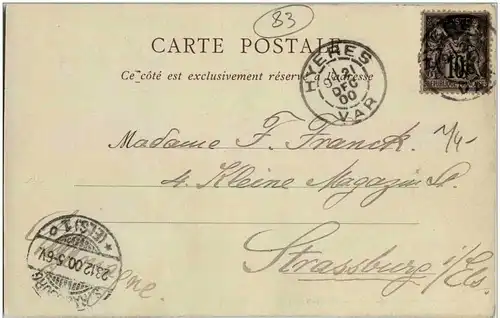 83
CARTE POSTALE
Ce côté est exclusivement réservé à l'adresse
HYERES
21
DEC
00
VAR
10
Madame F. Franck.
4. Kleine Magazin St.
Strassburg i/Els.
(ELS) 1 o
23.12.00.5-6V.